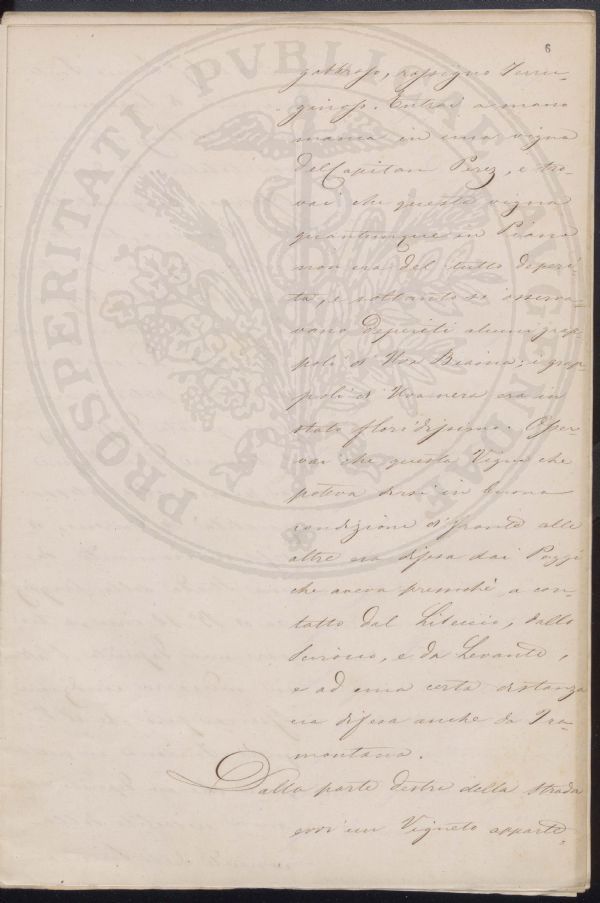 6
gattroso, rossigno Ferru-
ginoso. Entrai a mano
manca in una vigna
del Capitan Perez, e tro-
vai che questa vigna
quantunque in Piano
non era del tutto deperi-
ta, e soltanto si osserva-
vano deperiti alcuni grap-
poli d'Uva Bianca: i grap-
poli d'Uva nera era in
stato floridissimo. Osser-
vai che questa Vigna che
poteva dirsi in buona
condizione di fronte alle
altre era difesa dai Poggi
che aveva pressochè a con-
tatto dal Libeccio, dallo
Scirocco, e da Levante,
e ad una certa distanza
era difesa anche da Tra-
montana.
Dalla parte destra della strada
evvi un Vigneto apparte-
PROSPERITATI PVBLICAE AVGENDAE